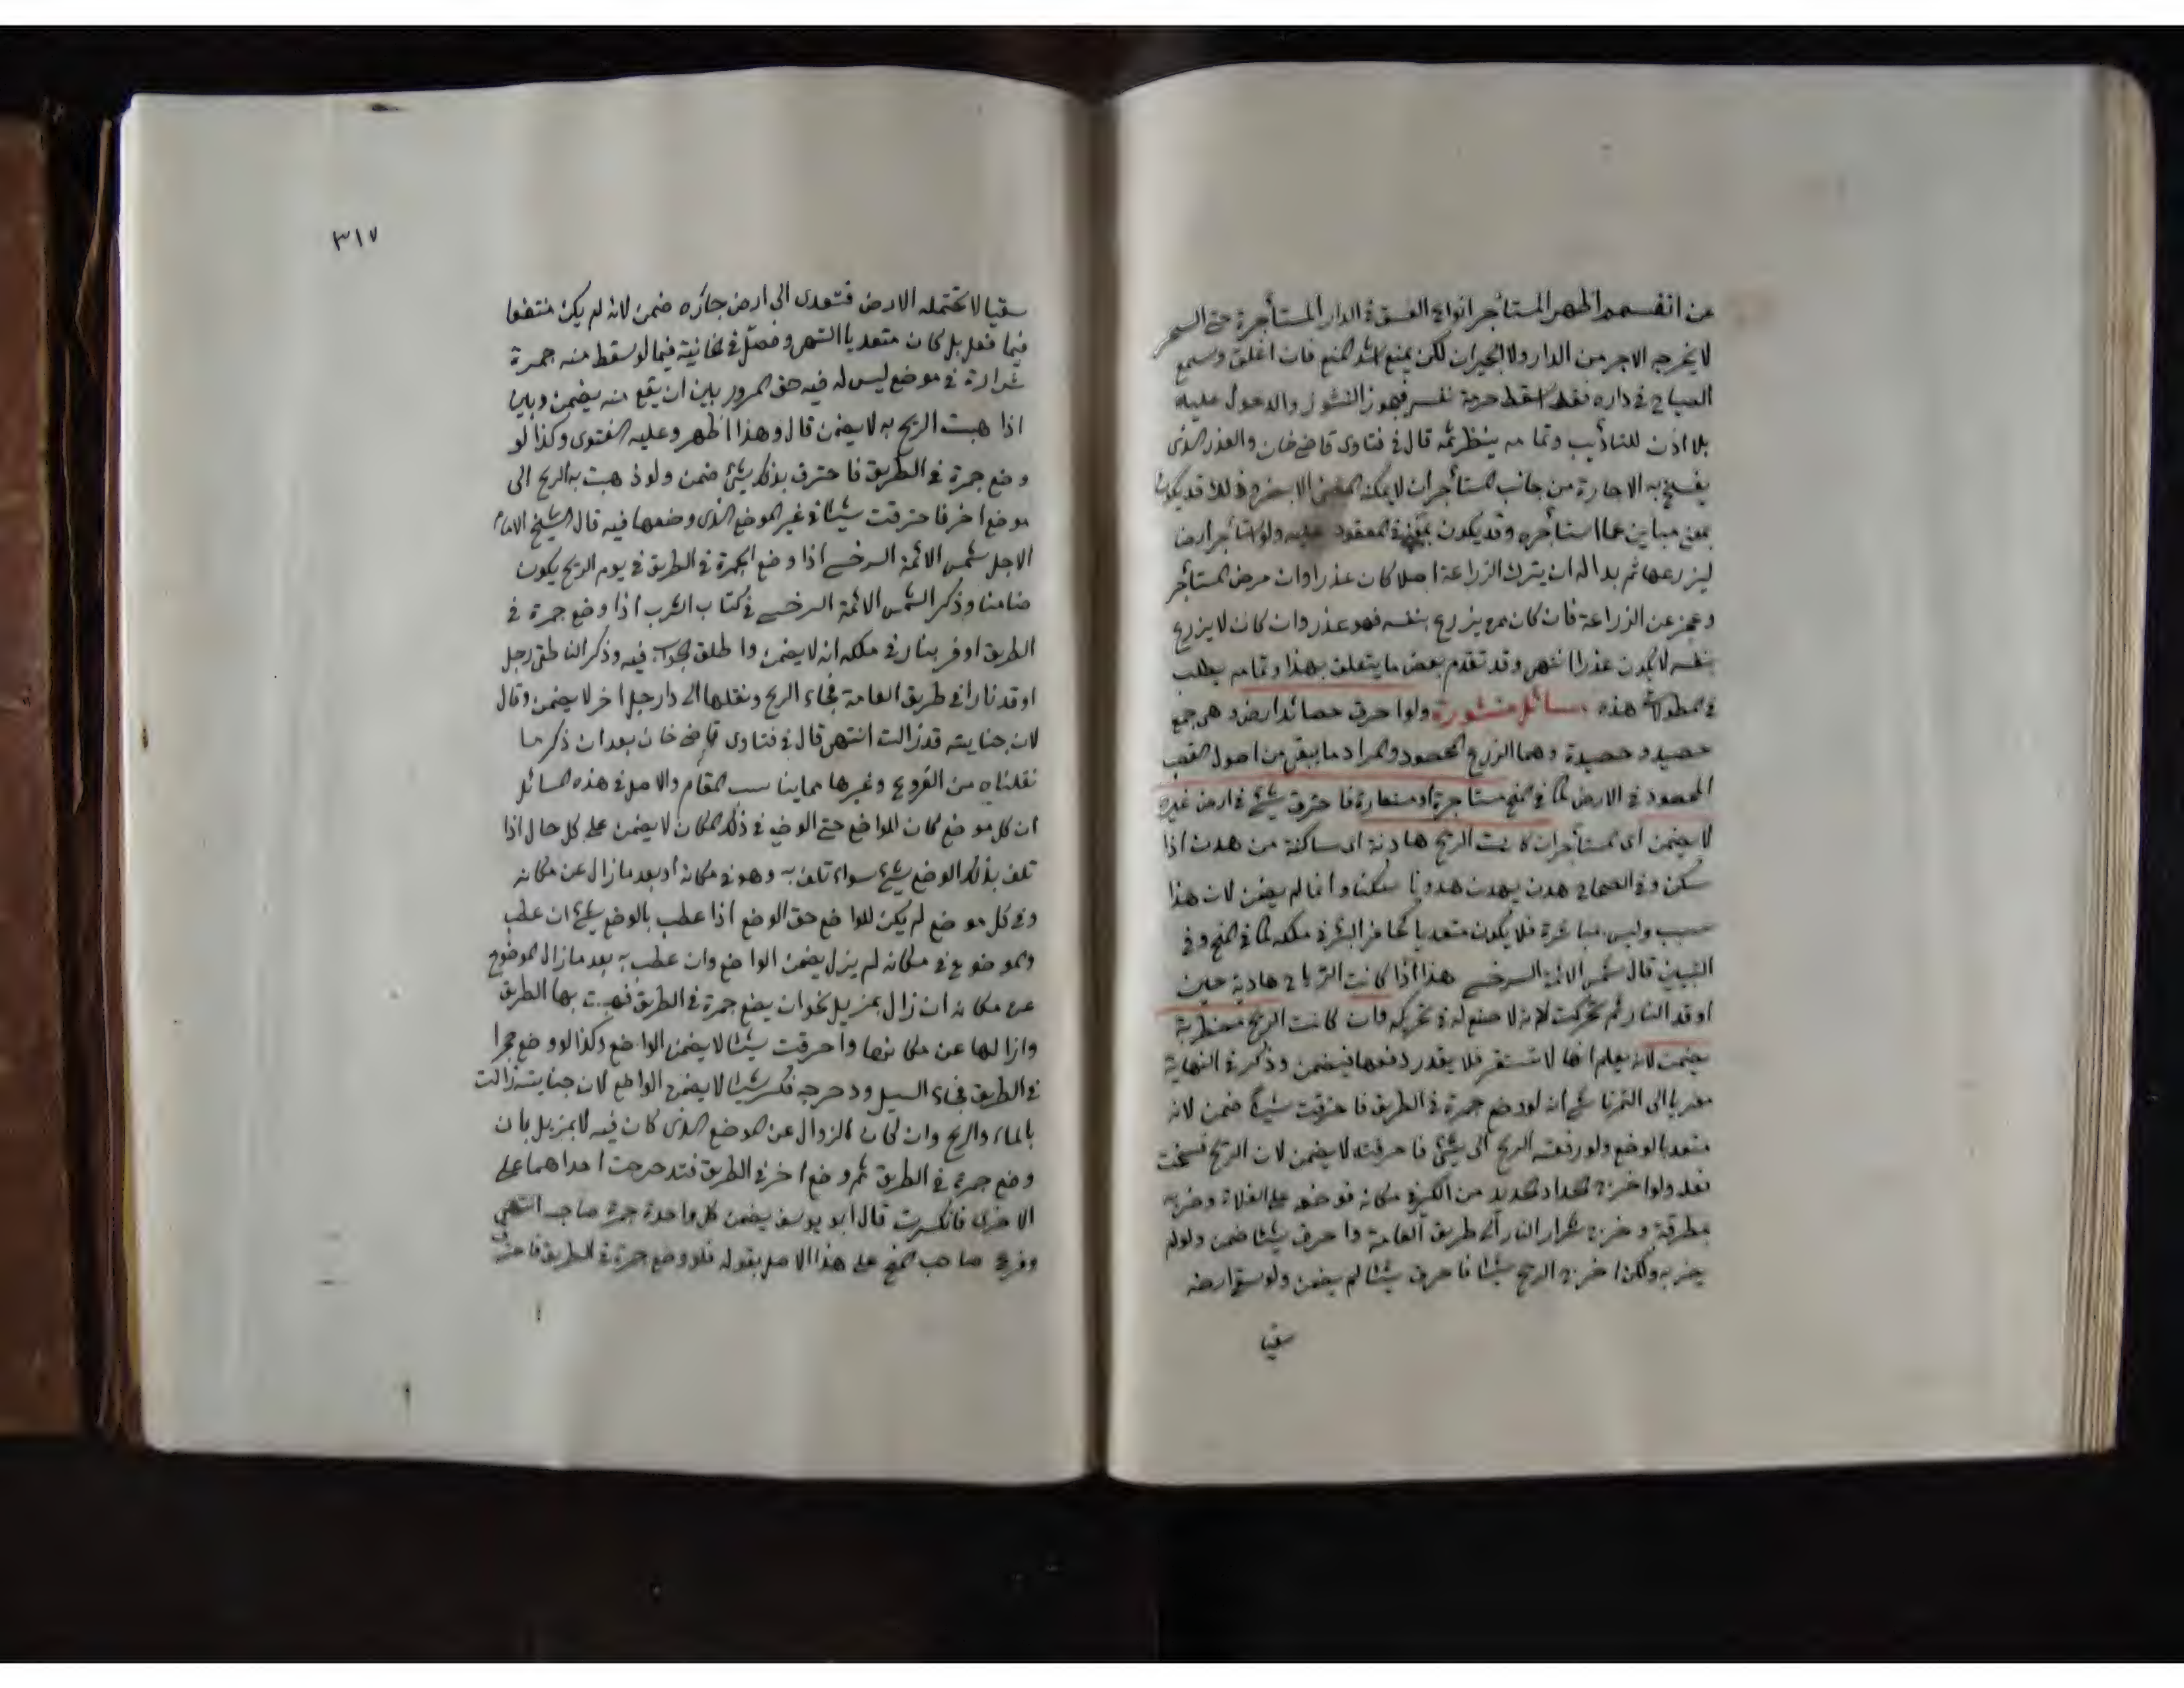 عن انفسهم اظهر المستأجر انواع الفسق في الدار المستأجرة حتى السحر
لا يخرجه الاجر من الدار ولا الجيران لكن يمنع اشد المنع فان اغلق وسمع
الصياح في داره فقد اسقط حرمة نفسه فيجوز التسور والدخول عليه
بلا اذن للتأديب وتمامه ينظر ثمه قال في فتاوى قاضي خان والعذر الذي
يفسخ به الاجارة من جانب المستأجر ان لا يمكنه المضي الا بضرر وذلك قد يكون
بمعنى مباين عما استأجره وقد يكون في المعقود عليه ولو استأجر ارضا
ليزرعها ثم بدا له ان يترك الزراعة اصلا كان عذرا وان مرض المستأجر
وعجز عن الزراعة فان كان ممن يزرع بنفسه فهو عذر وان كان لا يزرع
بنفسه لا يكون عذرا انتهى وقد تقدم بعض ما يتعلق بهذا وتمامه يطلب
في المطولات هذه مسائل منثورة ولو احرق حصائد ارض وهي جمع
حصيد وحصيدة وهما الزرع المحصود والمراد ما يبقى من اصول القصب
المحصود في الارض كما في المنح مستأجرة او مستعارة فاحترق شيء في ارض غيره
لا يضمن اي المستأجر ان كانت الريح هادنة اي ساكنة من هدن اذا
سكن وفي الصحاح هدن يهدن هدونا سكن وانما لم يضمن لان هذا
سبب وليس مباشرة فلا يكون متعديا كحافر البئر في ملكه كما في المنح وفي
التبيين قال شمس الائمة السرخسي هذا اذا كانت الرياح هادية حين
اوقد النار ثم تحركت لانه لا صنع له في تحريكه فان كانت الريح مضطربة
يضمن لانه يعلم انها لا تستقر فلا يقدر دفعها فيضمن وذكر في النهاية
معزيا الى التمرتاشي انه لو وضع جمرة في الطريق فاحترقت شيئا ضمن لانه
متعد بالوضع ولو رفعته الريح الى شيء فاحرقته لا يضمن لان الريح فسخت
فعله ولو اخرج الحداد الحديد من الكير في مكانه فوضعه على الفلاة وضربه
بمطرقة وخرج شرار النار الى طريق العامة واحرق شيئا ضمن ولو لم
يضربه ولكن اخرج الريح شيئا فاحرق شيئا لم يضمن ولو سقى ارضه
سقيا
٣١٧
سقيا لا تحتمله الارض فتعدى الى ارض جاره ضمن لانه لم يكن منتفعا
فيما فعل بل كان متعديا انتهى وفصل في الخانية فيما لو سقط منه جمرة
شرارة في موضع ليس له فيه حق المرور بين ان يقع منه يضمن وبين
اذا هبت الريح به لا يضمن قال وهذا اظهر وعليه الفتوى وكذا لو
وضع جمرة في الطريق فاحترق بذلك شيء ضمن ولو ذهبت به الريح الى
موضع اخر فاحترقت شيئا في غير الموضع الذي وضعها فيه قال الشيخ الامام
الاجل شمس الائمة السرخسي اذا وضع الجمرة في الطريق في يوم الريح يكون
ضامنا وذكر الشمس الائمة السرخسي في كتاب الشرب اذا وضع جمرة في
الطريق او مر بنار في ملكه انه لا يضمن واطلق الجواب فيه وذكر الناطفي رجل
اوقد نارا في طريق العامة فجاء الريح ونقلها الى دار رجل اخر لا يضمن وقال
لان جنايته قد زالت انتهى قال في فتاوى قاضي خان بعد ان ذكر ما
نقلناه من الفروع وغيرها مما يناسب المقام والاصل في هذه المسائل
ان كل موضع كان للواضع حق الوضع في ذلك المكان لا يضمن على كل حال اذا
تلف بذلك الوضع شيء سواء تلف به وهو في مكانه او بعد ما زال عن مكانه
وفي كل موضع لم يكن للواضع حق الوضع اذا عطب بالوضع شيء ان عطب
والموضوع في مكانه لم يزل يضمن الواضع وان عطب به بعد ما زال الموضوع
عن مكانه ان زال بمزيل نحو ان يضع جمرة في الطريق فهبت بها الطريق
وازالها عن مكانها واحرقت شيئا لا يضمن الواضع وكذا لو وضع حجرا
في الطريق فجاء السيل ودحرجه فكسر شيئا لا يضمن الواضع لان جنايته زالت
بالماء والريح وان كان الزوال عن الموضع الذي كان فيه لا بمزيل بان
وضع جمرة في الطريق ثم وضع اخر في الطريق فتدحرجت احداهما على
الاخرى فانكسرت قال ابو يوسف يضمن كل واحدة جمرة صاحبه انتهى
وفرع صاحب المنح على هذا الاصل بقوله فلو وضع جمرة في الطريق فاحترق